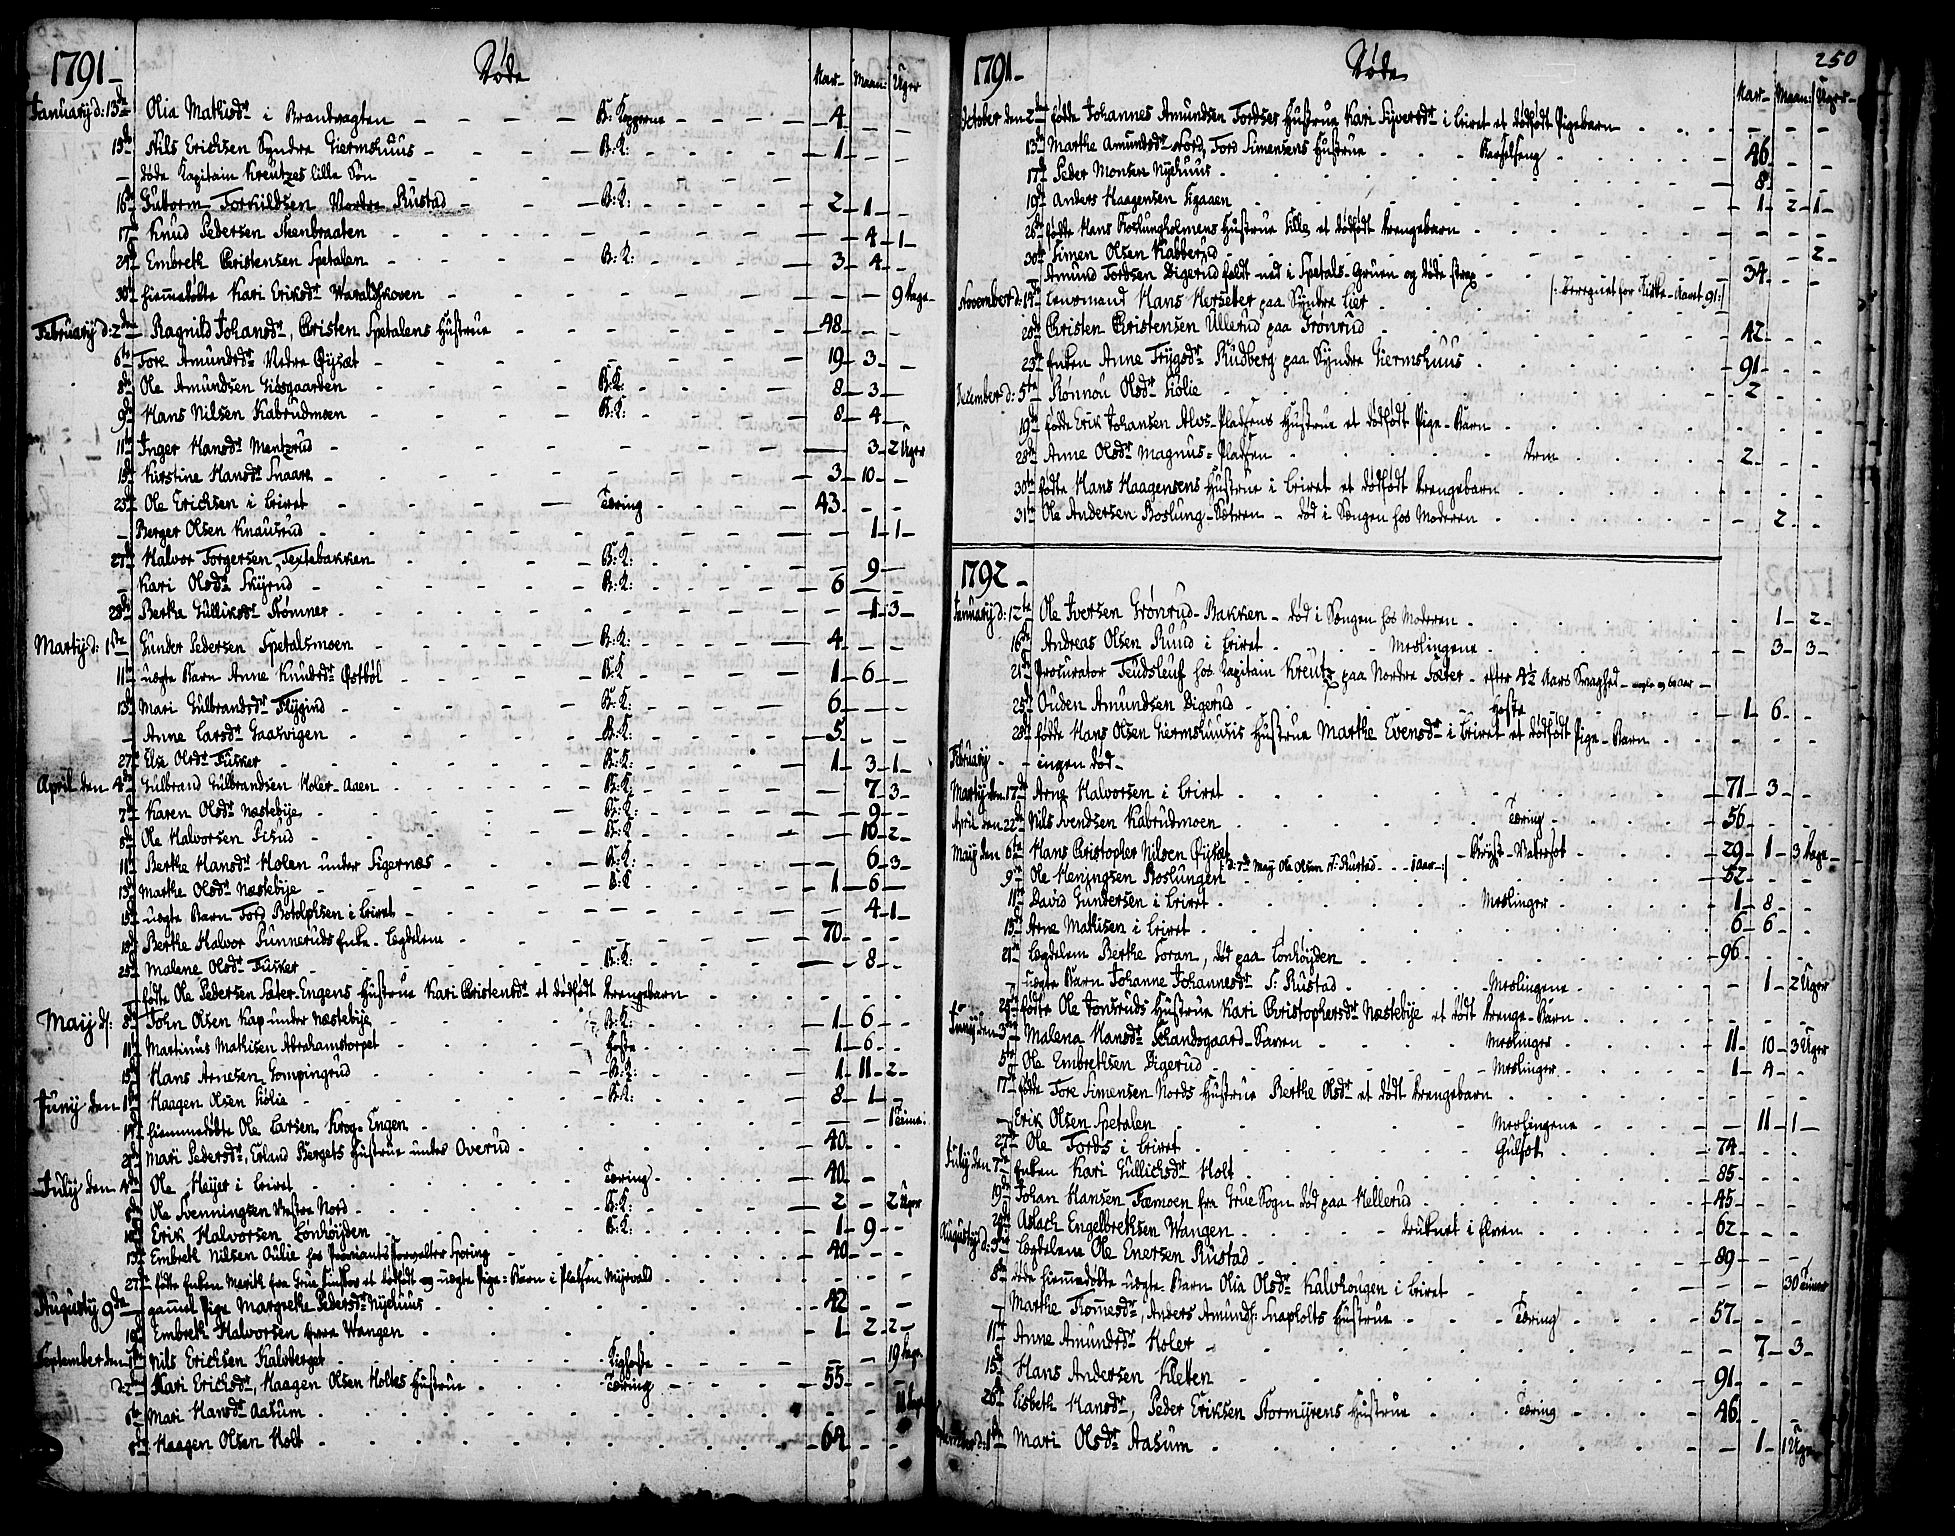 1791 Døde Aar Maan: Uger
January d: 13de Olia Mathisdr i Brandvagten B: Kopperne 4
15de Nils Erichsen Syndre Giermshuus B:K: 1
døde Kapitain Kreutzes lille Søn
16de Guttorm Torkildsen Nordre Rustad B:K: 2 1
17de Knud Pedersen Steenbraaten 4 1
29de Embrek Christensen Spetalen B:K: 3 4
30te hiemmedøbte Kari Eriksdr Varaldskoven 9 Dage
February d: 2den Ragnild Johansdr, Christen Spetalens Hustrue 48
6te Tore Amundsdr Nedre Øyset 19 3
8de Ole Amundsen Giesgaarden B:K: 8 3
9de Hans Nilsen Kabrudmoen B:K: 8 4
11te Inger Hansdr Mentzrud 3 2 Uger
15de Kirstine Hansdr Snaare 3 10
23de Ole Erichsen i Leiret Tæring 43
Berger Olsen Knausrud 1 1
27de Halvor Torgersen, Textebakken B:K: 9
Kari Olsdr Skyrud B:K: 6
28de Berthe Gulliksdr Strømner 1 3
Martij d: 1ste Gunder Pedersen Spetalsmoen B:K: 4
11te uægte Barn Anne Knudsdr Østbøl B:K 1 6
13de Mari Gulbrandsdr Flygind B:K: 6
Anne Larsdr Gaasvigen B:K: 5
27de Else Olsdr Fusker B:K: 1 3 1
April den 4de Gulbrand Gulbrandsen Holer-Aaen B:K: 7 3
7de Karen Olsdr Næstebye B:K: 9
8de Ole Halvorsen Lisud B:K: 10 2
11te Berthe Hansdr Holen under Sigernæs B:K: 6 3
13de Marthe Olsdr Næstebye B:K 1 6
15de uægte Barn Tord Botolphsen i Leiret 4 1
18de Berthe Halvor Sunneruds Enke. Lægdelem 70
25de Malene Olsdr Fusker B:K: 8
fødte Ole Pedersen Sæter-Engens Hustrue Kari Christensdr et dødfødt Drengebarn
Maij d: 8de John Olsen Kap under Næstebye B:K: 1 6
11te Martinus Mathisen Abrahamstorpet Hoste 1 6
15de Hans Arnesen Gompingrud B:K: 1 11 2
Junij den 1ste Haagen Olsen Liolie B:K: 8 1
14de hiemmedøbte Ole Larsen, Krog-Engen 1 Time:
21de Mari Pedersdr, Erland Bergets Hustrue under Overud 40
July den 4de Ole Meyer i Leiret Tæring 40
8de Ole Svenningsen Vestre Nord B:K: 2 2 Uger
10de Erik Halvorsen Lønhøyden B:K: 1 9
13de Embrek Nilsen Aulie hos Proviants Forvalter Sporing 40
27de fødte Enken Marith fra Grue Finskov et dødfødt og uægte Pige-Barn i Pladsen Myrvold
Augusty 9de gammel Pige Margrethe Pedersdr Nyehuus 42
10de Embrek Halvorsen Øvre Wangen 1 2 2
September den 1ste Nils Erichsen Kalvberget Kighoste 19 Dage
2den Kari Erichsdr, Haagen Olsen Holtes Hustrue Tæring 55
6te Mari Hansdr Aasum 11 Dage
8de Haagen Olsen Holt 64
250
1791 Døde Aar Maan: Uger
October den 2den fødte Johannes Amundsen Tordses Hustrue Kari Syversdr i Leiret et dødfødt Pigebarn
13de Marthe Amundsdr Nord, Tord Simensens Hustrue Barselseng 46
17de Peder Monsen Nyehuus 8
19de Anders Haagensen Sigaaen 1 2 1
26de fødte Hans Boslungholmens Hustrue Lille et dødfødt Drengebarn
30te Simen Olsen Kabberud 2
Amund Tordsen Digerud faldt ned i Spetals-Gruen og døde strax 34
November d: 14de Lensmand Hans Herseter paa Syndre Lier /: beregnet for Kirke-Aaret 91:/
20de Christen Christensen Ullerud paa Grønrud 42
23de Enken Anne Trygsdr Rudberg paa Syndre Giermshuus 91
December d: 5te Rønnou Olsdr Liolie 2
19de fødte Erik Johansen Alvs-Pladsens Hustrue et dødfødt Pige-Barn
28de Anne Olsdr Magnus-Pladsen Orm 2
30te fødte Hans Haagensens Hustrue i Leiret et dødfødt Drengebarn
31te Ole Andersen Boslung-Sætren - død i Sængen hos Moderen 2
1792
January d: 12te Ole Iversen Grønrud-Bakken - død i Sængen hos Moderen 1 2
16de Andreas Olsen Ruud i Leiret Meslingene 3 3
21de Procurator Feudsleuf hos Kapitain Kreutz paa Nordre Sæter - efter 4½ Aars Svaghed
25de Ouden Amundsen Digerud Hoste 1 6
28de fødte Hans Olsen Giermshuusis Hustrue Marthe Evensdr i Leiret et dødfødt Pige-Barn
February ingen død
Martij den 17de Arne Halvorsen i Leiret 71 3
April den 22de Nils Svendsen Kabrudmoen Tæring 56
Maij den 6te Hans Christopher Nilsen Øyset Bryst-Vatersot 29 1 3 Dage
d: 7de May Ole Olsen N: Rustad 1 Aar :/
9de Ole Henningsen Boslungen 52
11te David Gundersen i Leiret Meslinger 1 8
13de Arne Mathisen i Leiret 6 6
21de Lægdelem Berthe Soran, død paa Lønhøyden 96
uægte Barn Johanne Johannesdr S: Rustad Meslingene 1 2 Uger
25de fødte Ole Jonsruds Hustrue Kari Christophersdr Næstebye et dødt Drenge-Barn
Junij den 3die Malena Hansdr Skandsgaard-Sagen Meslinger 11 10 3 Uger
5te Ole Embrethsen Digerud Meslinger 1 4
17de fødte Tore Simensen Nords Hustrue Berthe Olsdr et dødt Drengebarn
Erik Olsen Spetalen Meslingene 11 1
27de Ole Tords i Leiret Gulsot 74
July den 7de Enken Kari Gullichsdr Holt 85
19de Johan Hansen Tæmoen fra Grue Sogn død paa Hellerud 45
20de Aslach Engelbrethsen Wangen druknet i Elven 62
Augusty d: 3die Lægdelem Ole Enersen Rustad 89
8de døde hiemmedøbte uægte Barn Olia Olsdr Kalvhougen i Leiret 30 Timer
Marthe Tommesdr, Anders Amunds: Snapholts Hustrue Tæring 57
11te Anne Amundsdr Holer 7 3
15de Hans Andersen Kleten 91
26de Lisbeth Hansdr, Peder Eriksen Stormyrens Hustrue Tæring 46
d: 1ste Mari Olsdr Aasum 1 1 Uge